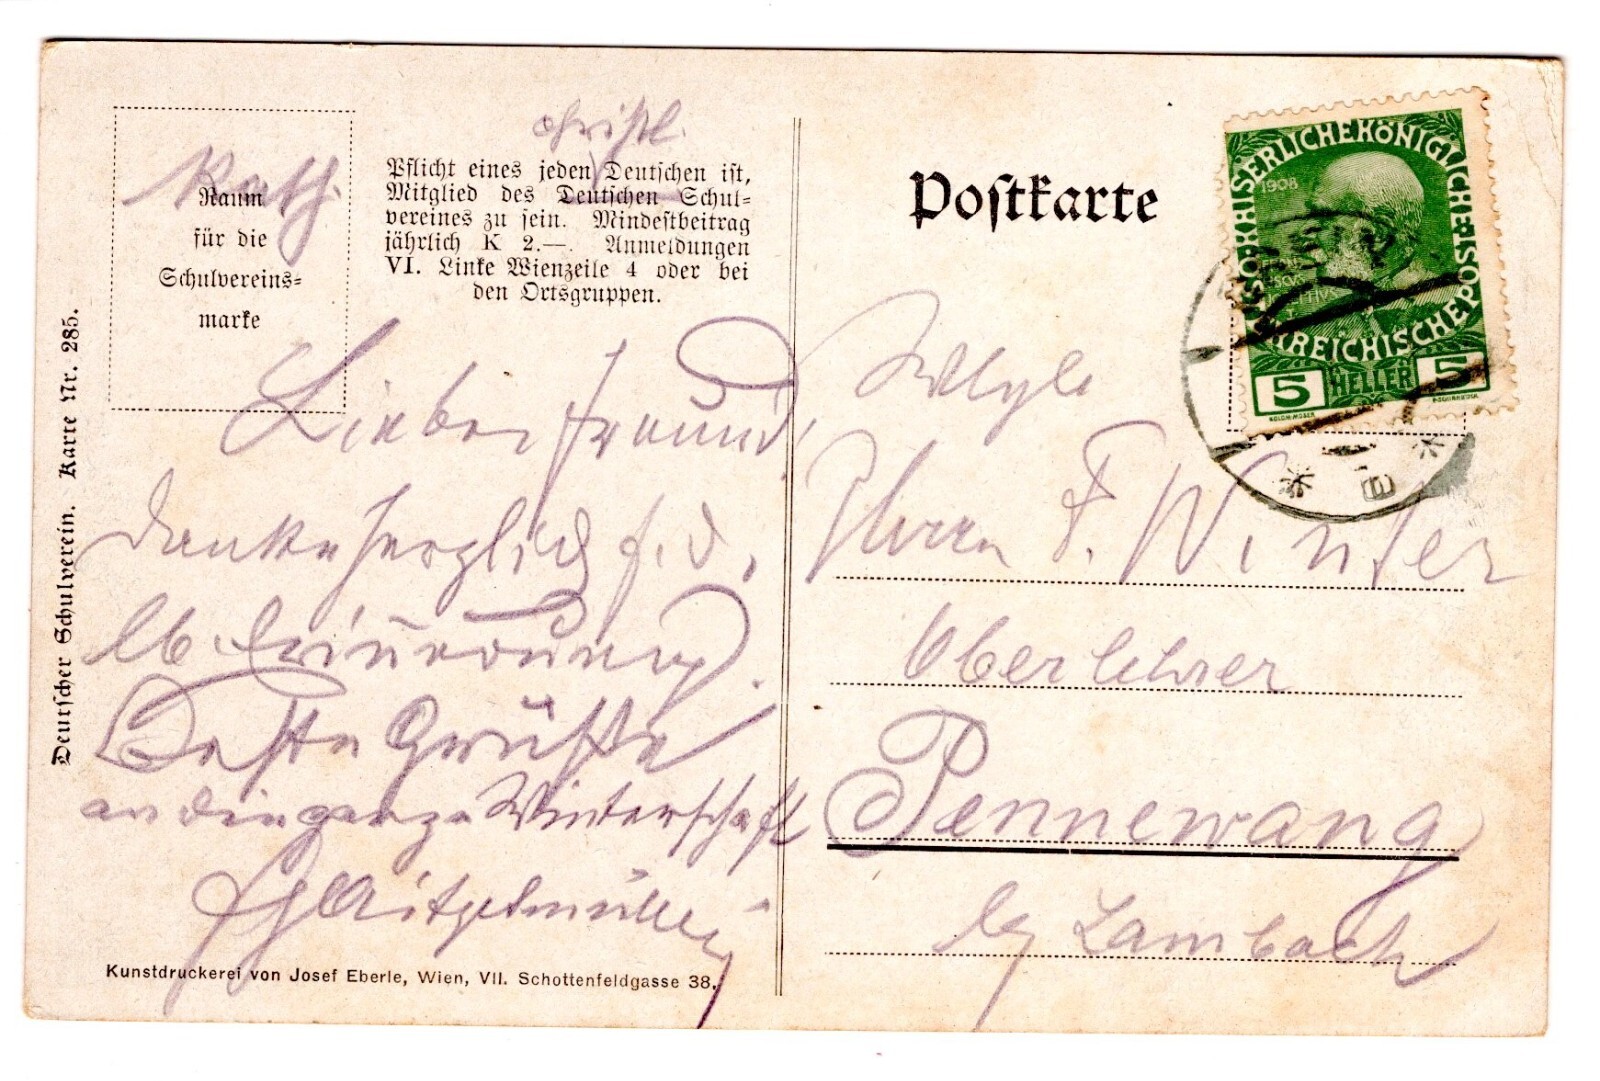 Deutscher Schulverein. Karte Nr. 285.
Kath.
Raum
für die
Schulvereins-
marke
christl.
Pflicht eines jeden Deutschen ist,
Mitglied des Deutschen Schul-
vereines zu sein. Mindestbeitrag
jährlich K 2.—. Anmeldungen
VI. Linke Wienzeile 4 oder bei
den Ortsgruppen.
Lieber Freund!
Danke herzlich f. d.
lb. Erinnerung.
Beste Grüße
an die ganze Winterschaft
Kunstdruckerei von Josef Eberle, Wien, VII. Schottenfeldgasse 38.
Postkarte
KAISERLICHEKÖNIGLICHE
ÖSTERREICHISCHEPOST
1908
5 HELLER 5
Wlgb
Herrn F. Winter
Oberlehrer
Pennewang
b/ Lambach